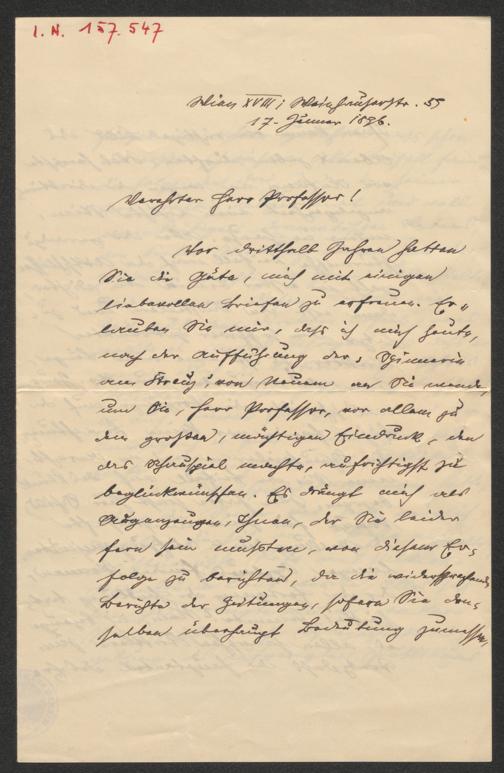 I. N. 157.547
Wien XVIII; Weinhauserstr. 55
17. Jänner 1896.
Verehrter Herr Professor!
Vor dritthalb Jahren hatten
Sie die Güte, mich mit einigen
liebevollen Briefen zu erfreuen. Er-
lauben Sie mir, daß ich mich heute,
nach der Aufführung der „Spinnerin
am Kreuz“, von Neuem an Sie wende,
um Sie, Herr Professor, vor allem zu
dem großen, mächtigen Eindruck, den
das Schauspiel machte, aufrichtigst zu
beglückwünschen. Es drängt mich als
Augenzeugen, Ihnen, der Sie leider
fern sein mußten, von diesem Er-
folge zu berichten, da die widersprechenden
Berichte der Zeitungen, sofern Sie den-
selben überhaupt Bedeutung zumessen,